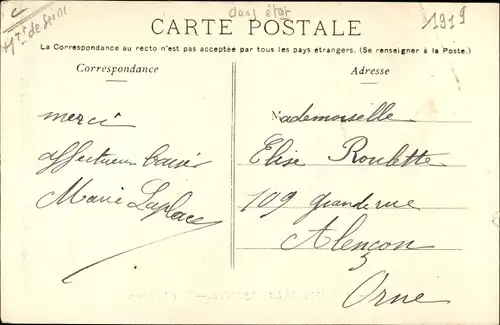 Hts de Seine
dans état
1919
CARTE POSTALE
La Correspondance au recto n'est pas acceptée par tous les pays étrangers. (Se renseigner à la Poste.)
Correspondance
Adresse
merci
affectueux baiser
Marie Laplace
Mademoiselle
Elise Roulette
109 grande rue
Alençon
Orne